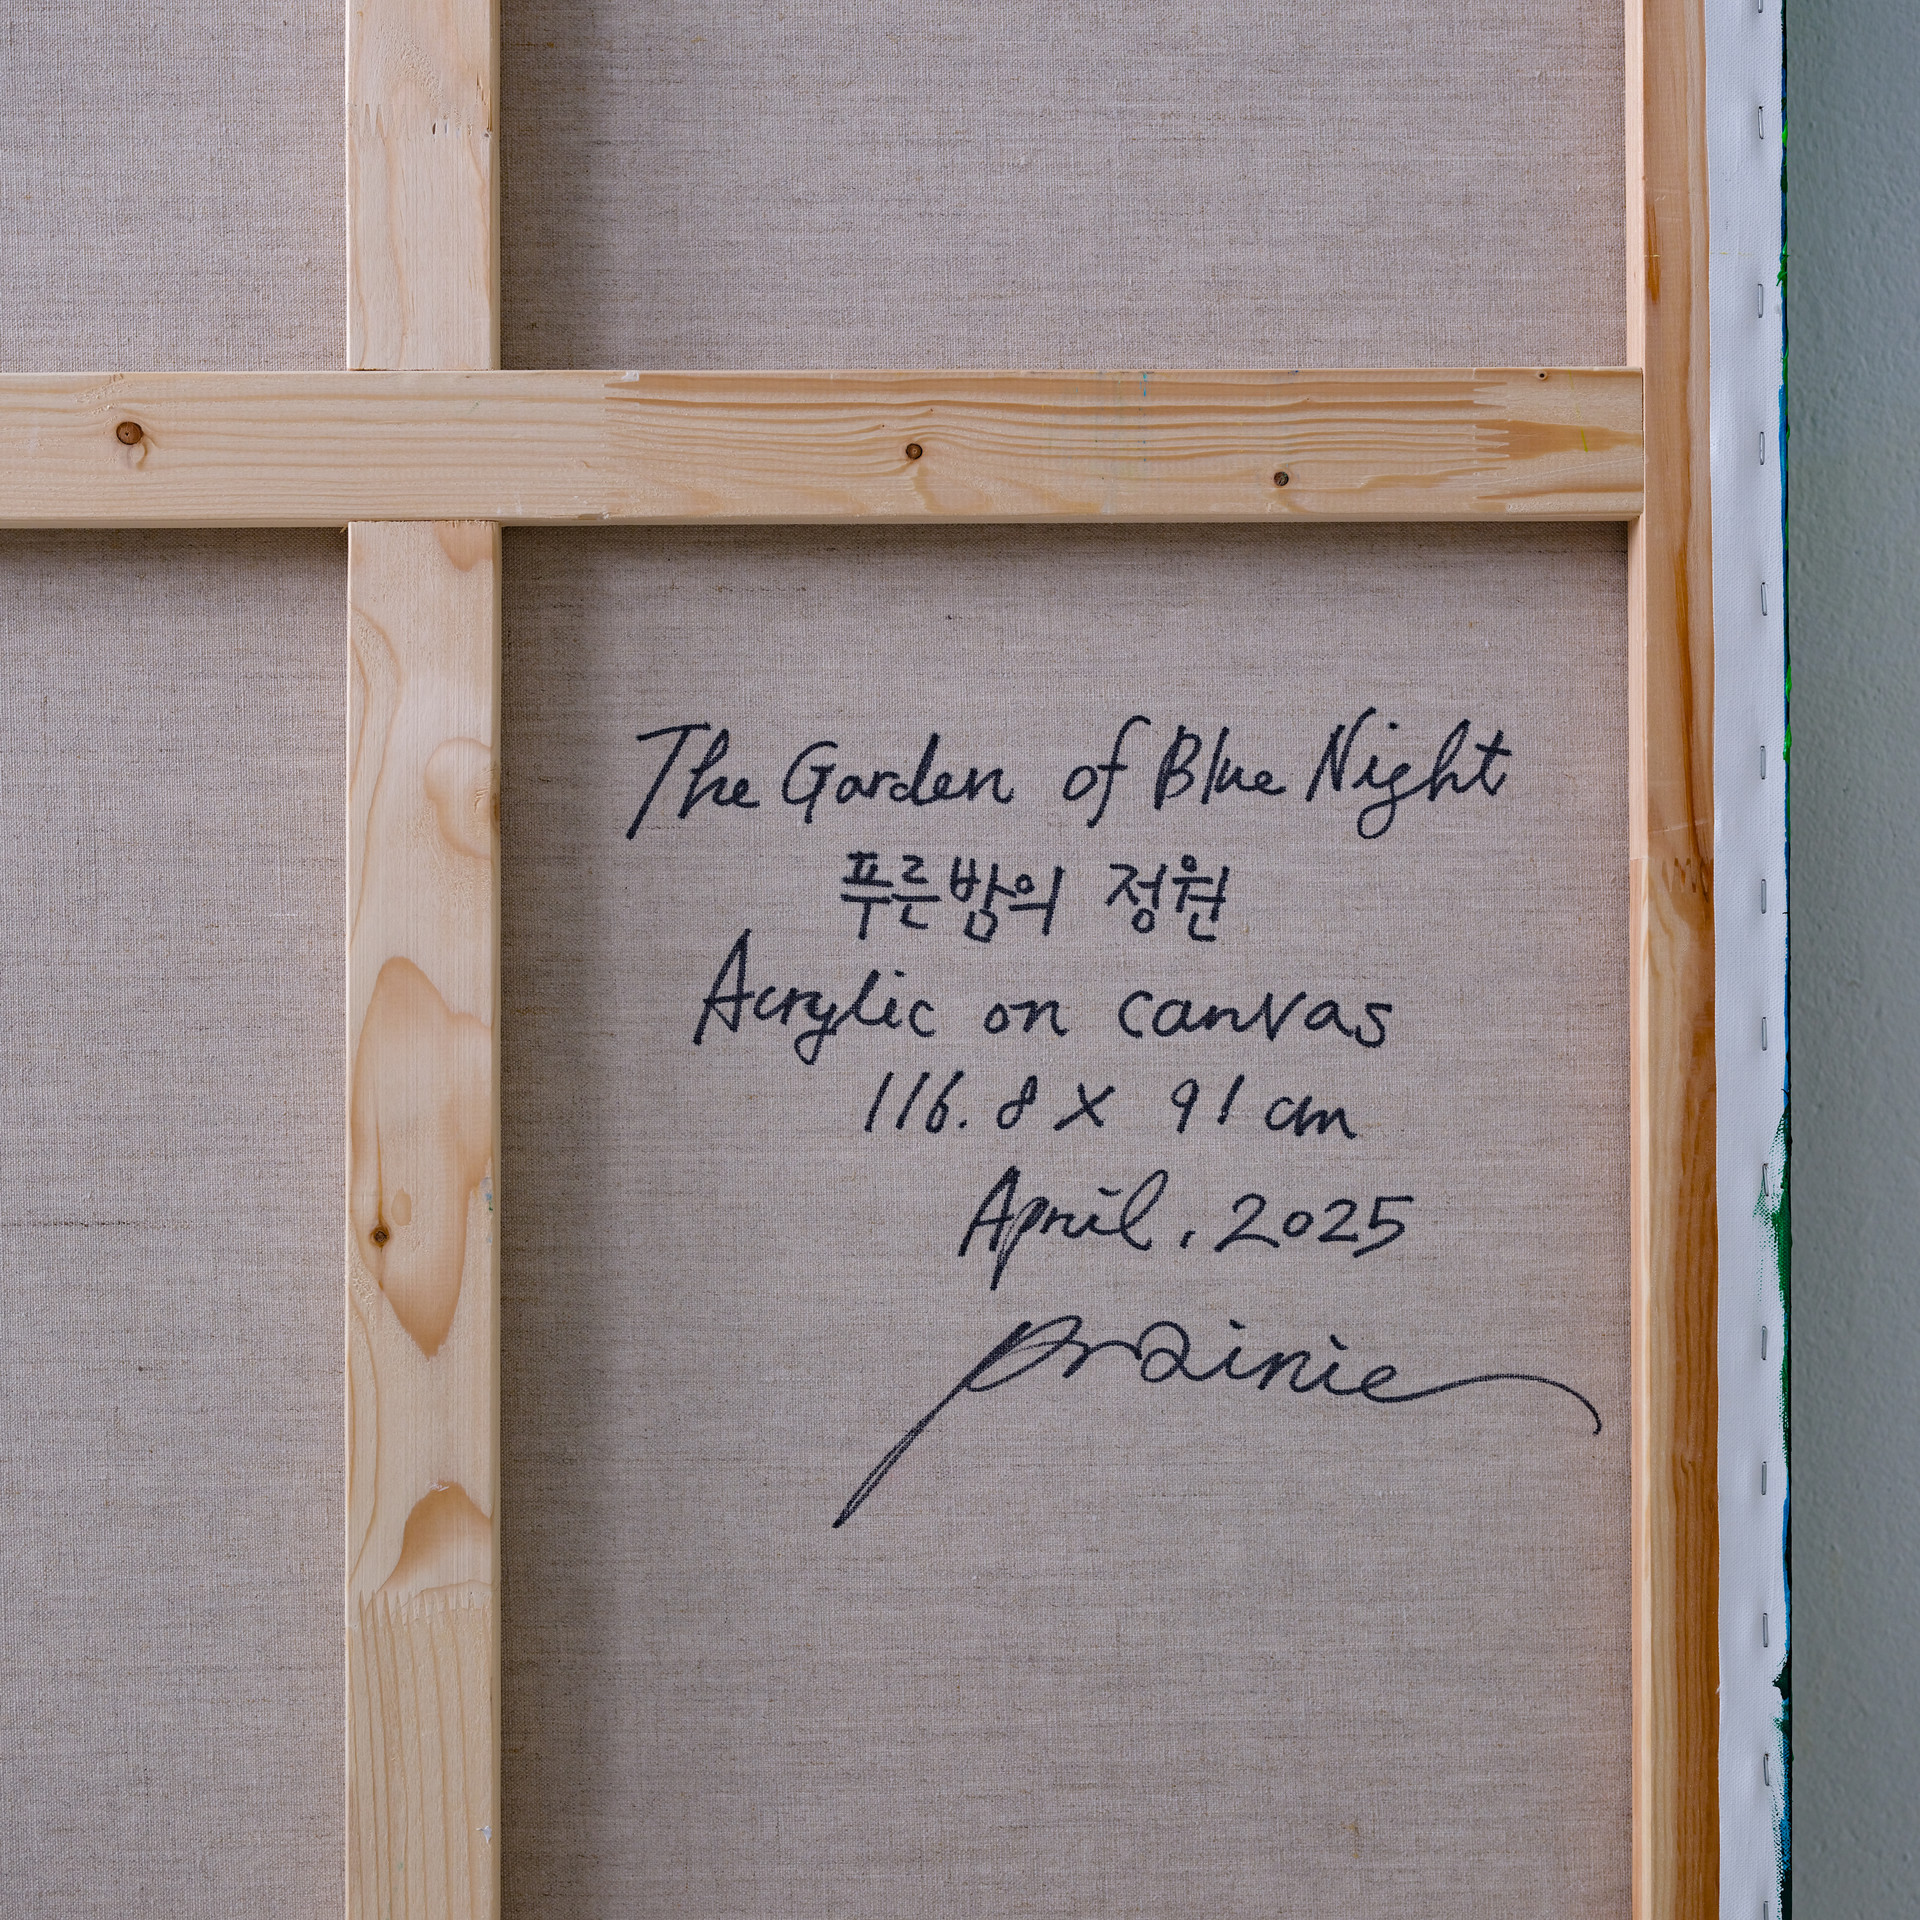 The Garden of Blue Night
푸른밤의 정원
Acrylic on canvas
116.8 X 91 cm
April, 2025
prainie